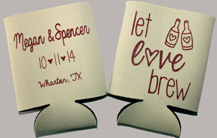 Megan & Spencer
10•11•14
Wharton, TX
let
love
brew